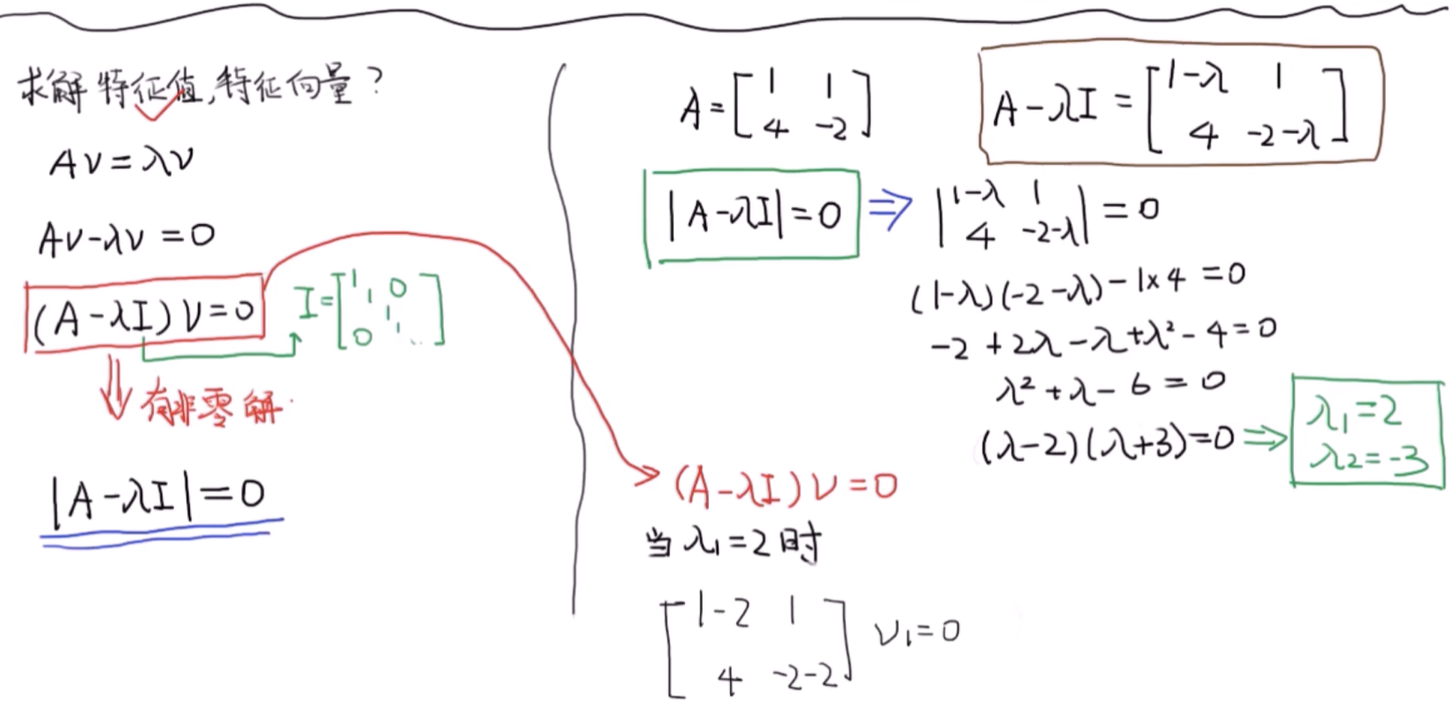 求解特征值,特征向量?
Av=λv
Av-λv=0
(A-λI)v=0
I=[1 0
1
1
0 ⋱]
有非零解.
|A-λI|=0
A=[1 1
4 -2]
A-λI=[1-λ 1
4 -2-λ]
|A-λI|=0 ⇒ |1-λ 1
4 -2-λ|=0
(1-λ)(-2-λ)-1×4=0
-2+2λ-λ+λ²-4=0
λ²+λ-6=0
(λ-2)(λ+3)=0 ⇒ λ₁=2
λ₂=-3
(A-λI)v=0
当λ₁=2时
[1-2 1
4 -2-2] v₁=0